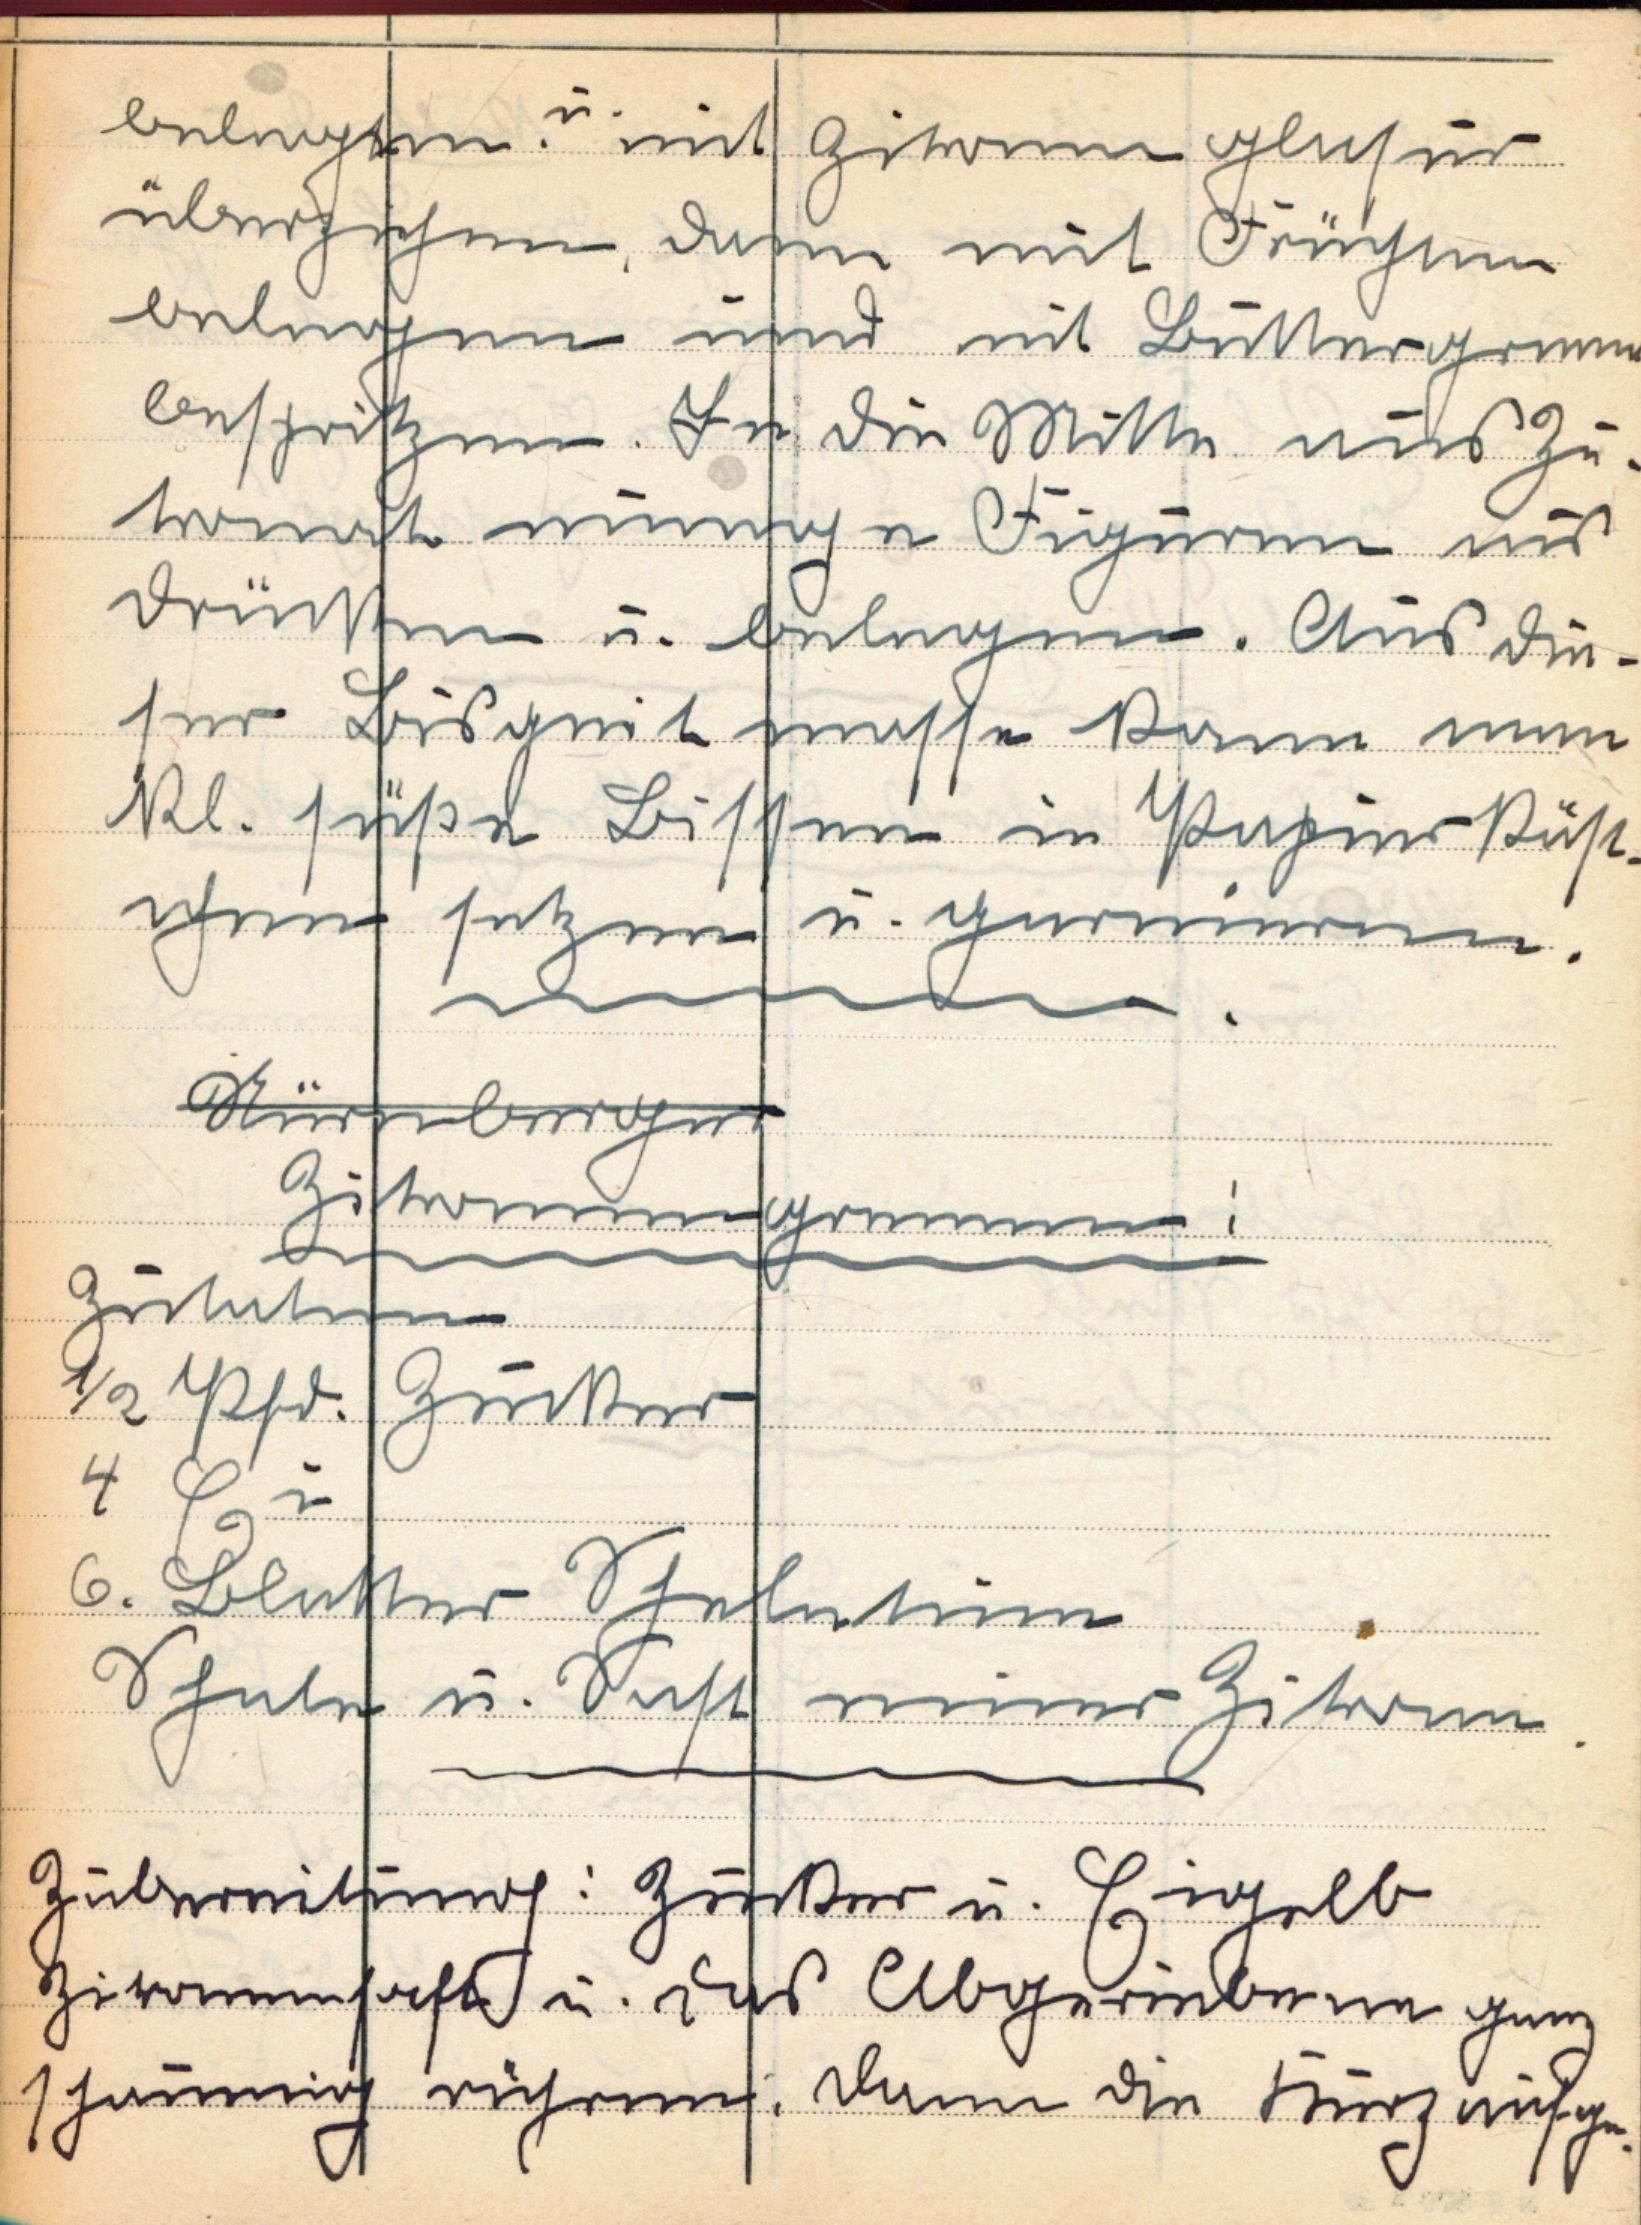 belegen. u. mit Zitronenglasur
überziehen, dann mit Früchten
belegen und mit Buttergreme
bespritzen. In die Mitte aus Zi-
tronat einige Figuren aus
drücken u. belegen. Aus die-
ser Bisquit masse kann man
kl. süße Bissen in Papierkäst-
chen setzen u. garnieren.
Nürnberger
Zitronengremen:
Zutaten
1/2 Pfd. Zucker
4 Ei
6. Blatter Gelatine
Schale u. Saft einer Zitrone.
Zubereitung: Zucker u. Eigelb
Zitronensaft u. das Abgeriebene ganz
schaumig rühren. Dann die kurz aufge-